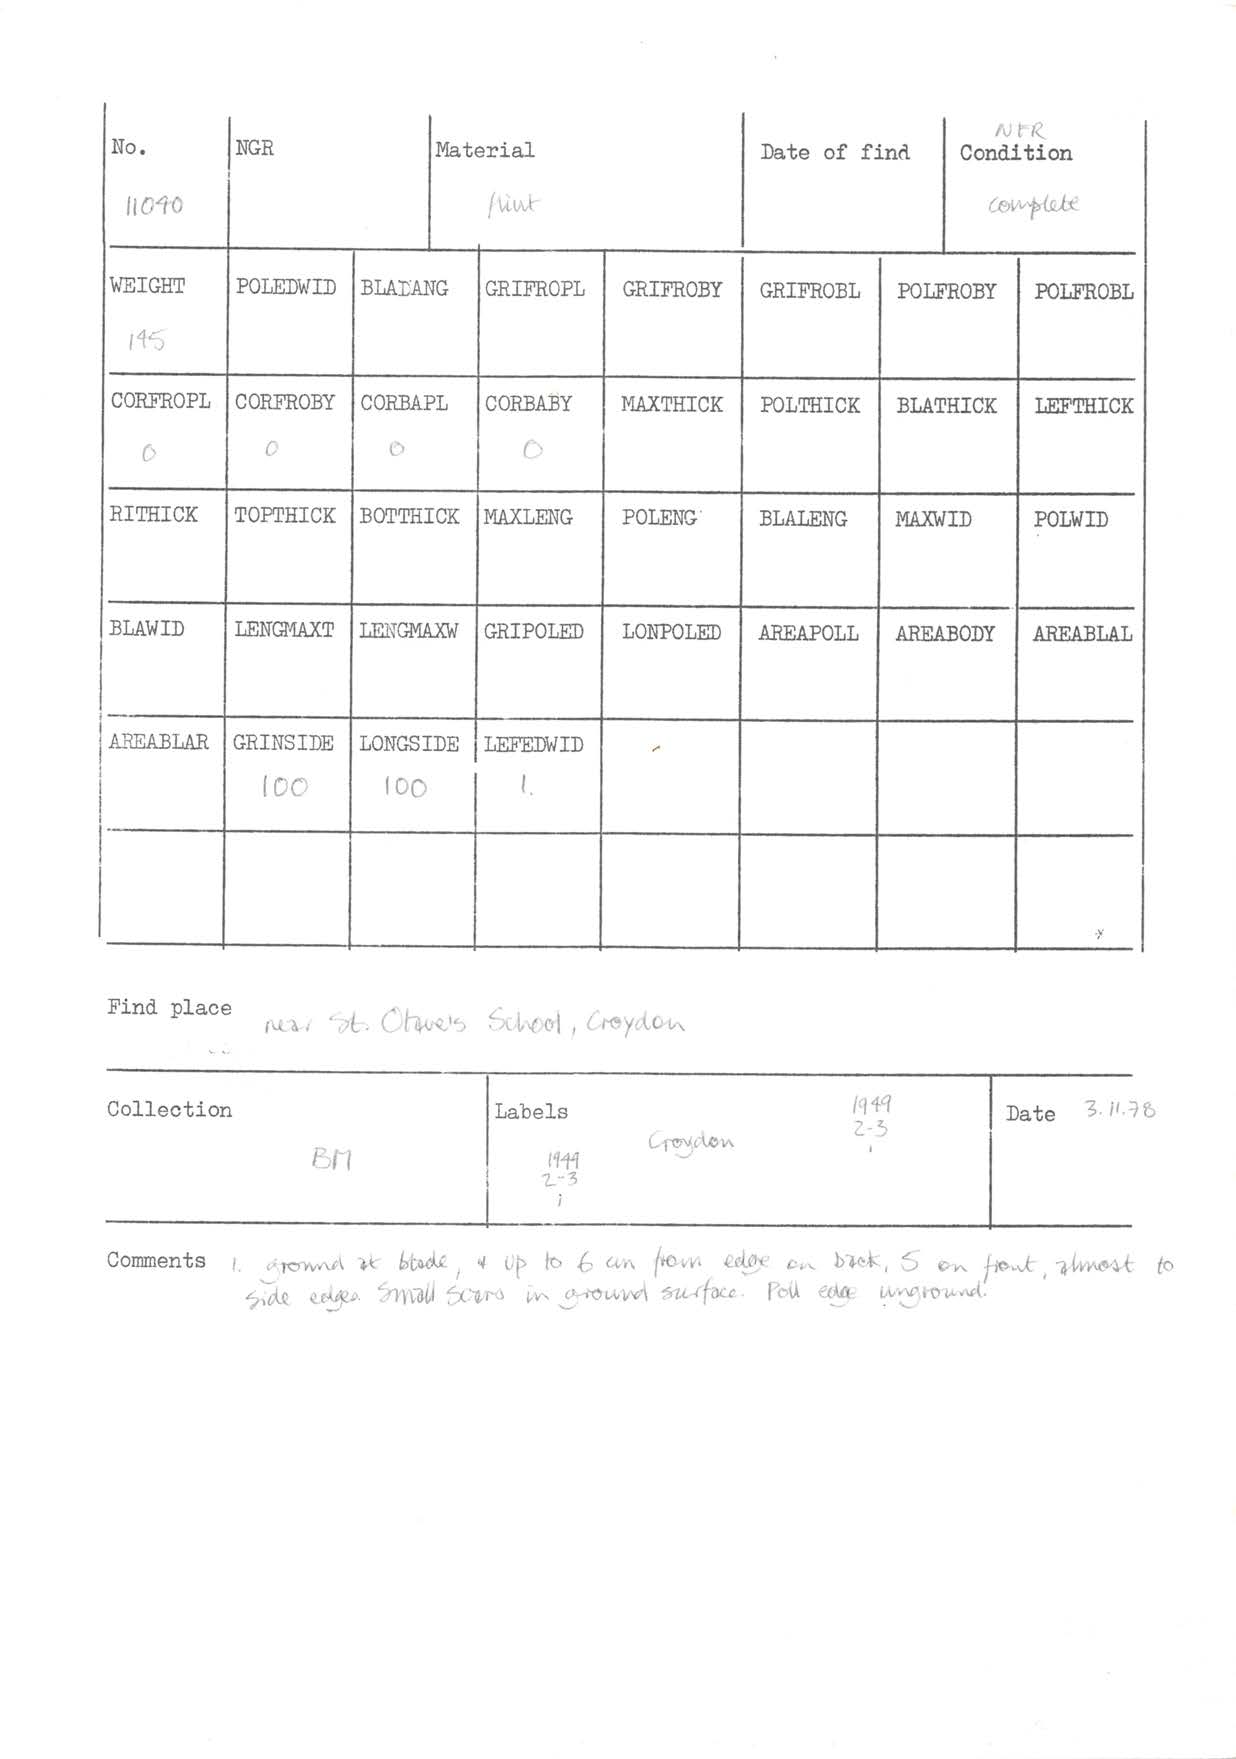 No. NGR Material Date of find NFR Condition
11090 flint complete
WEIGHT POLEDWID BLADANG GRIFROPL GRIFROBY GRIFROBL POLFROBY POLFROBL
195
CORFROPL CORFROBY CORBAPL CORBABY MAXTHICK POLTHICK BLATHICK LEFTHICK
0 0 0 0
RITHICK TOPTHICK BOTTHICK MAXLENG POLENG BLALENG MAXWID POLWID
BLAWID LENGMAXT LENGMAXW GRIPOLED LONPOLED AREAPOLL AREABODY AREABLAL
AREABLAR GRINSIDE LONGSIDE LEFEDWID
100 100 1.
Find place near St. Olave's School, Croydon
Collection Labels 1949 Date 3.11.78
2-3
BM 1949 Croydon 1
2-3
1
Comments 1. ground at blade, + up to 6 cm from edge on back, 5 on front, almost to
side edges. Small scars in ground surface. Poll edge unground.